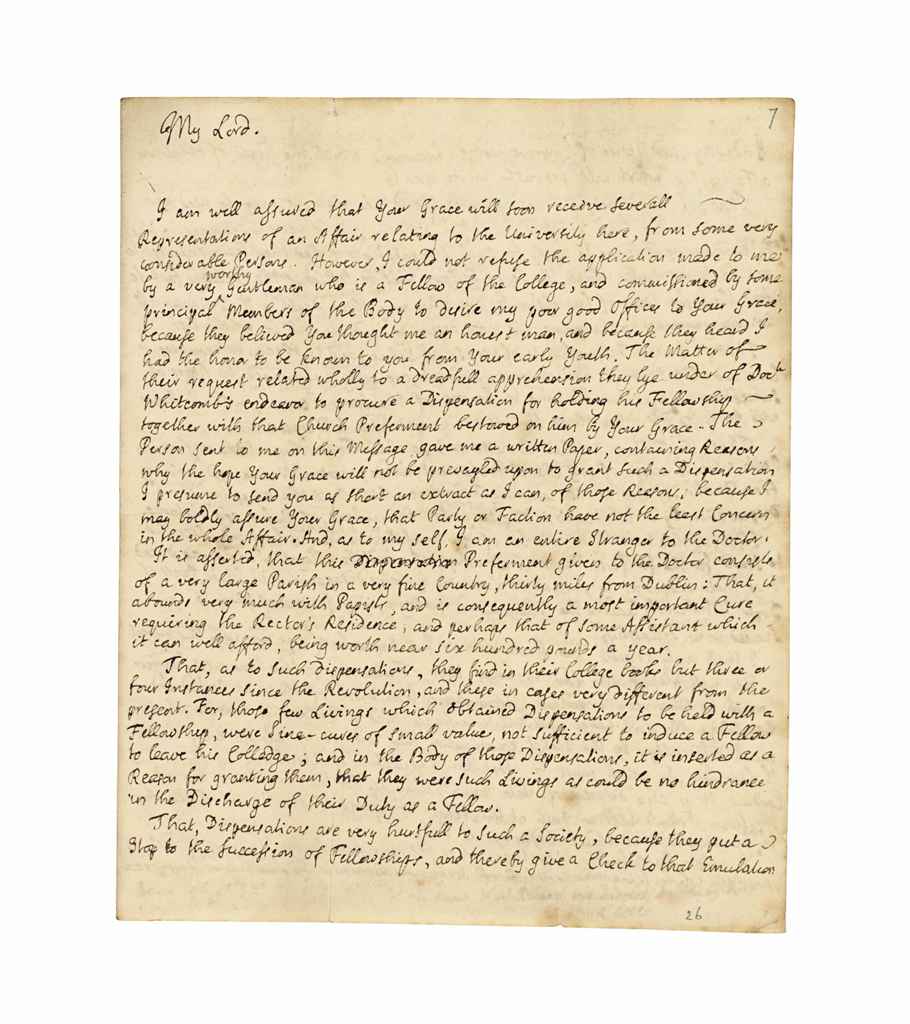 7
My Lord.
I am well assured that Your Grace will soon receive severall
Representations of an Affair relating to the University here, from some very
considerable Persons. However, I could not refuse the application made to me
by a very worthy Gentleman who is a Fellow of the College, and commissioned by some
principal Members of the Body to desire my poor good Offices to Your Grace,
because they believed You thought me an honest man, and because they heard I
had the honor to be known to you from Your early Youth. The Matter of
their request related wholly to a dreadfull apprehension they lye under of Doctr
Whitcomb's endeavor to procure a Dispensation for holding his Fellowship
together with that Church Preferment bestowed on him by Your Grace. The
Person sent to me on this Message gave me a written Paper, containing Reasons
why the hope Your Grace will not be prevayled upon to grant such a Dispensation
I presume to send you as short an extract as I can, of those Reasons; because I
may boldly assure Your Grace, that Party or Faction have not the least Concern
in the whole Affair. And, as to my self, I am an entire Stranger to the Doctor.
It is asserted, that this Preferment given to the Doctor consists
of a very large Parish in a very fine Country, thirty miles from Dublin: That, it
abounds very much with Papists, and is consequently a most important Cure
requiring the Rector's Residence, and perhaps that of some Assistant which
it can well afford, being worth near six hundred pounds a year.
That, as to such dispensations, they find in their College books but three or
four Instances since the Revolution, and these in cases very different from the
present. For, those few Livings which obtained Dispensations to be held with a
Fellowship, were Sine-cures of small value, not sufficient to induce a Fellow
to leave his Colledge; and in the Body of those Dispensations, it is inserted as a
Reason for granting them, that they were such Livings as could be no hindrance
in the Discharge of their Duty as a Fellow.
That, Dispensations are very hurtfull to such a Society, because they put a
Stop to the Succession of Fellowships, and thereby give a Check to that Emulation
26